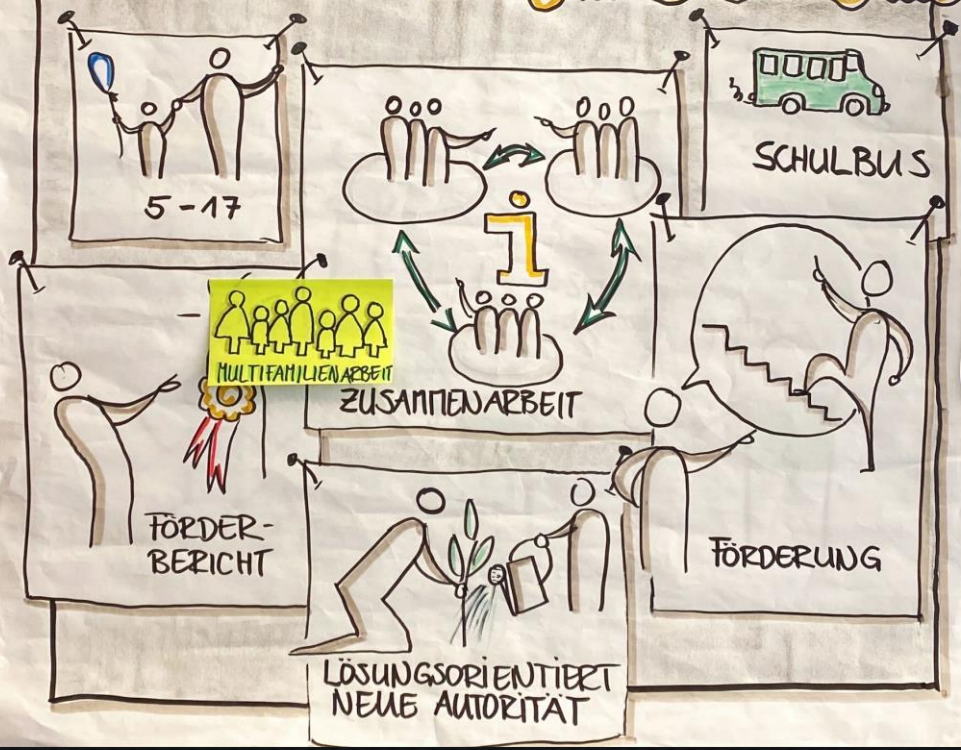 5-17
SCHULBUS
i
MULTIFAMILIENARBEIT
ZUSAMMENARBEIT
FÖRDER-
BERICHT
FÖRDERUNG
LÖSUNGSORIENTIERT
NEUE AUTORITÄT